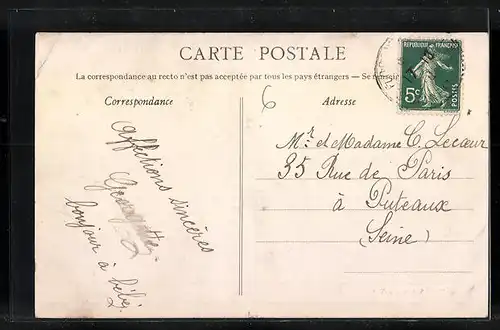 CARTE POSTALE
La correspondance au recto n'est pas acceptée par tous les pays étrangers — Se
Correspondance
Adresse
6
RÉPUBLIQUE FRANÇAISE
5c
POSTES
Affections sincères
Georgette
bonjour à bébé.
Mr et Madame C. Lecœur
35 Rue de Paris
à Puteaux
(Seine)